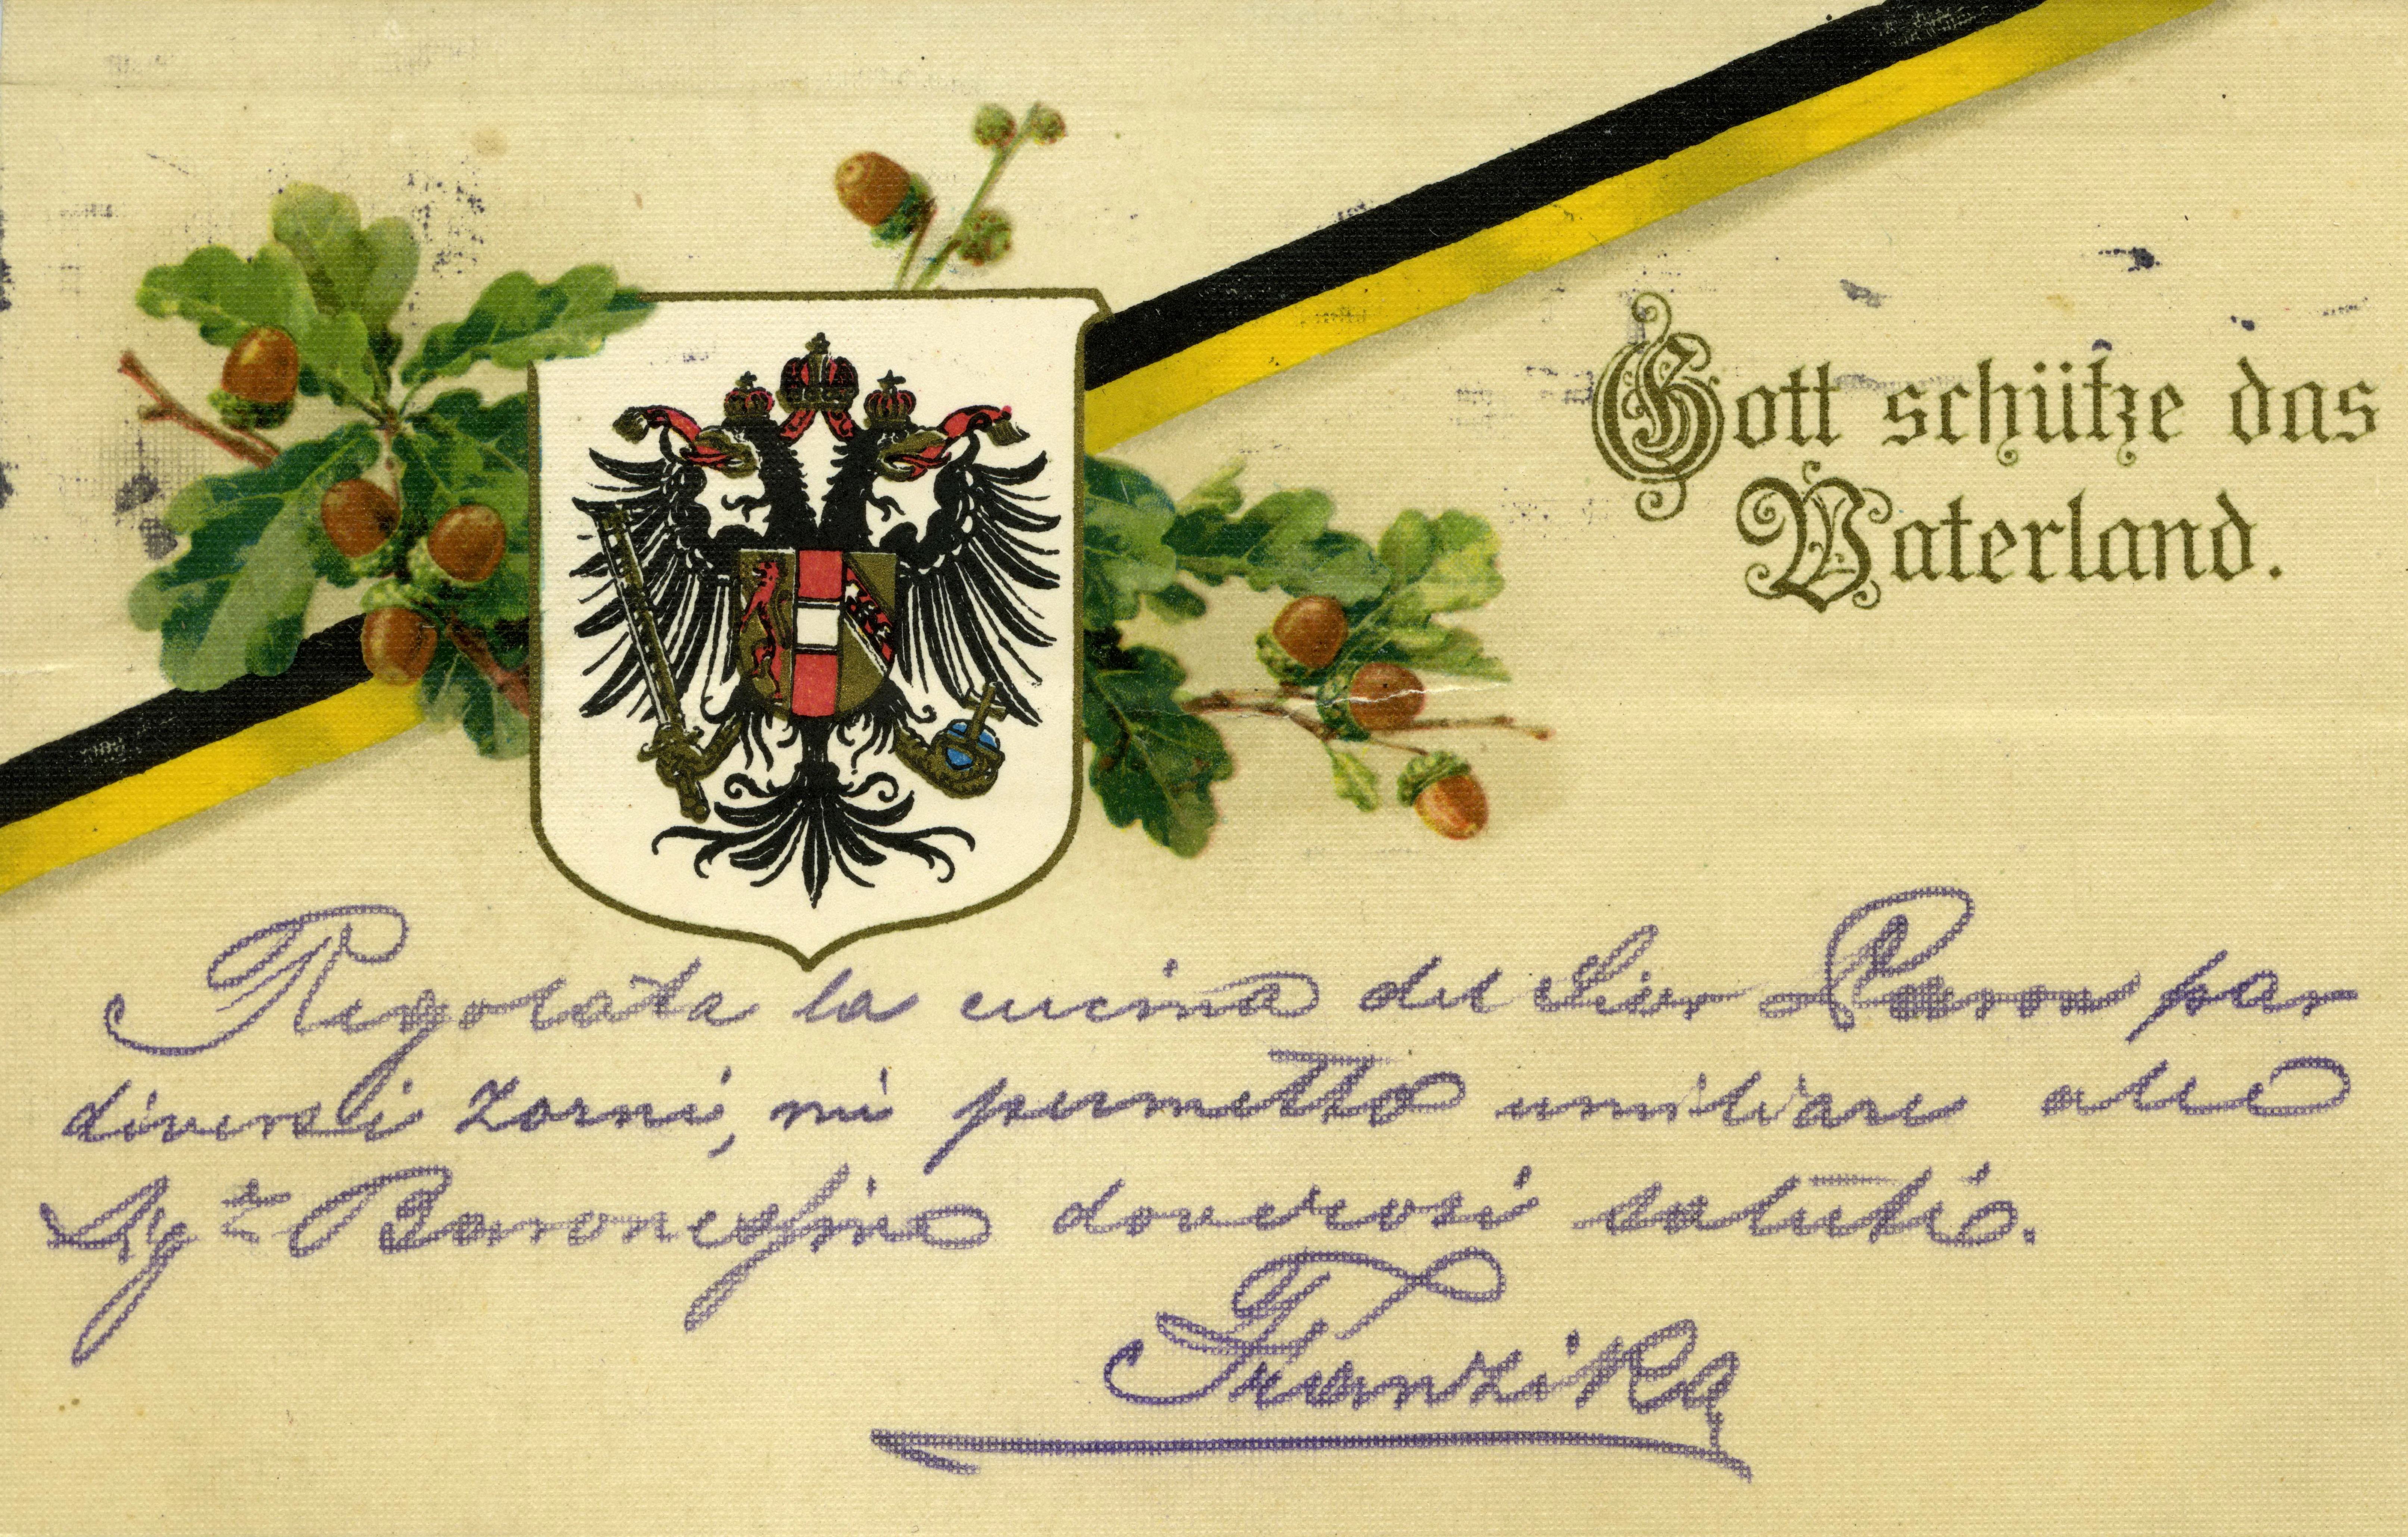 Gott schütze das
Vaterland.
Regolata la cucina del Sior Paron par
diversi zorni, mi permetto umiliare alle
Sg.te Baronessine doverosi salutio.
Franzika